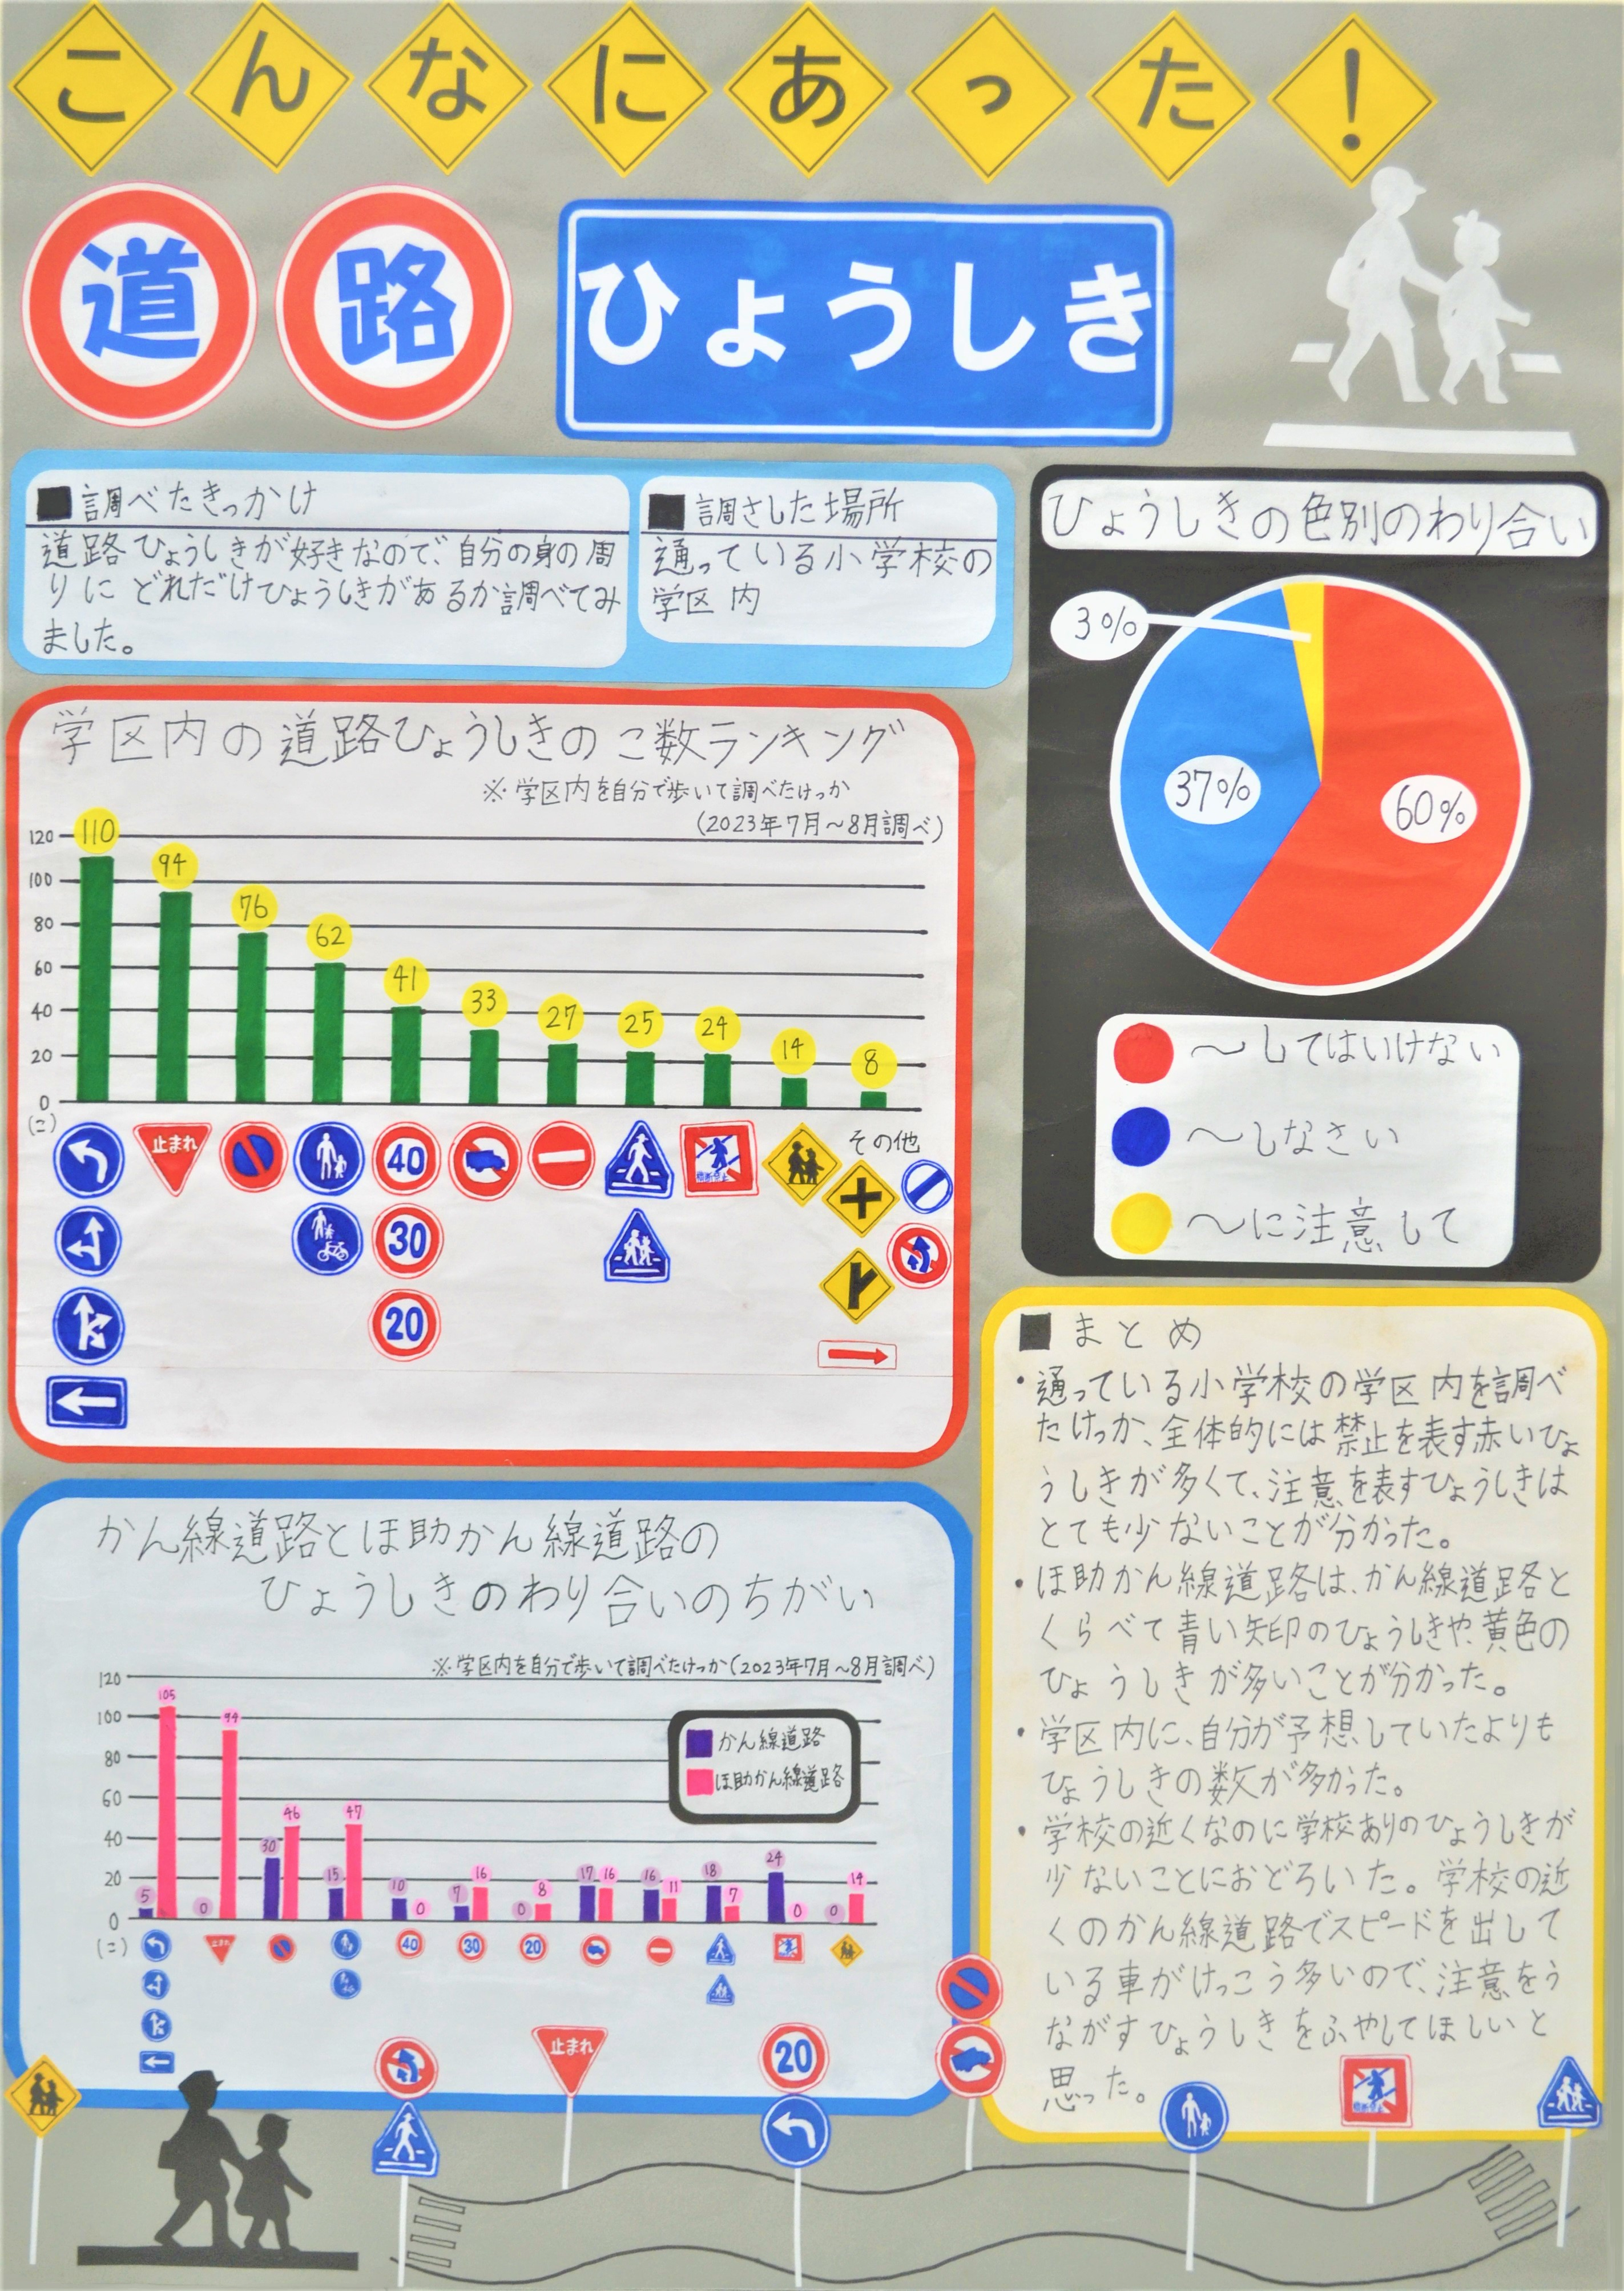 こんなにあった!
道路ひょうしき
■調べたきっかけ
道路ひょうしきが好きなので、自分の身の周
りにどれだけひょうしきがあるか調べてみ
ました。
■調さした場所
通っている小学校の
学区内
ひょうしきの色別のわり合い
3%
37%
60%
〜してはいけない
〜しなさい
〜に注意して
学区内の道路ひょうしきのこ数ランキング
※学区内を自分で歩いて調べたけっか
(2023年7月〜8月調べ)
120
100
80
60
40
20
0
(こ)
110 94 76 62 41 33 27 25 24 14 8
止まれ 40 横断禁止 その他
30
20
かん線道路とほ助かん線道路の
ひょうしきのわり合いのちがい
※学区内を自分で歩いて調べたけっか(2023年7月〜8月調べ)
かん線道路
ほ助かん線道路
120
100
80
60
40
20
0
(こ)
5 105 0 94 30 46 15 47 10 0 7 16 0 8 17 16 16 11 18 7 24 0 0 14
止まれ 40 30 20
■まとめ
・通っている小学校の学区内を調べ
たけっか、全体的には禁止を表す赤いひょ
うしきが多くて、注意を表すひょうしきは
とても少ないことが分かった。
・ほ助かん線道路は、かん線道路と
くらべて青い矢印のひょうしきや、黄色の
ひょうしきが多いことが分かった。
・学区内に、自分が予想していたよりも
ひょうしきの数が多かった。
・学校の近くなのに学校ありのひょうしきが
少ないことにおどろいた。学校の近
くのかん線道路でスピードを出して
いる車がけっこう多いので、注意をう
ながすひょうしきをふやしてほしいと
思った。
止まれ
20